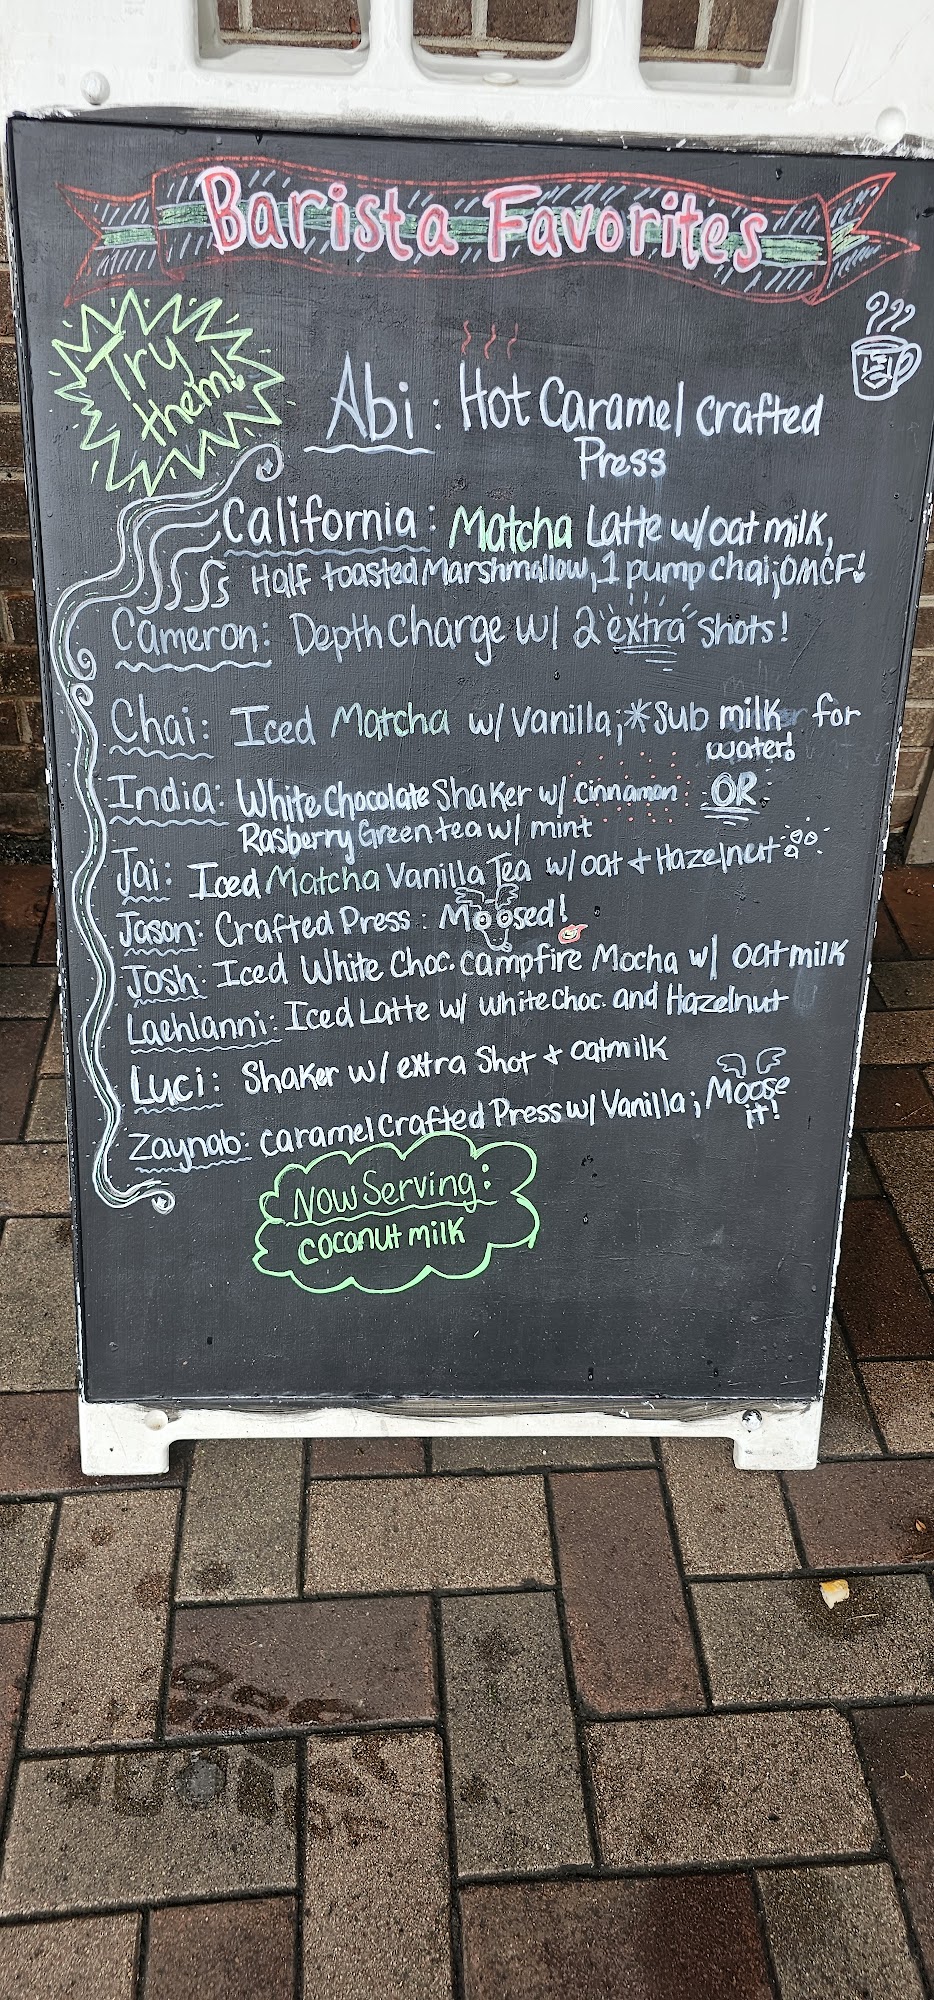 Barista Favorites
Try
them!
Abi: Hot Caramel Crafted
Press
California: Matcha Latte w/oat milk,
Half toasted Marshmallow, 1 pump chai; OMCF!
Cameron: Depth Charge w/ 2 "extra" shots!
Chai: Iced Matcha w/ Vanilla; *Sub milk for
water!
India: White Chocolate Shaker w/ cinnamon OR
Rasberry Green tea w/ mint
Jai: Iced Matcha Vanilla Tea w/ oat + Hazelnut
Jason: Crafted Press: Moosed!
Josh: Iced White Choc. campfire Mocha w/ oatmilk
Laehlanni: Iced Latte w/ white choc. and Hazelnut
Luci: Shaker w/ extra Shot + oatmilk
Zaynab: Caramel Crafted Press w/ Vanilla; Moose
it!
Now Serving:
coconut milk